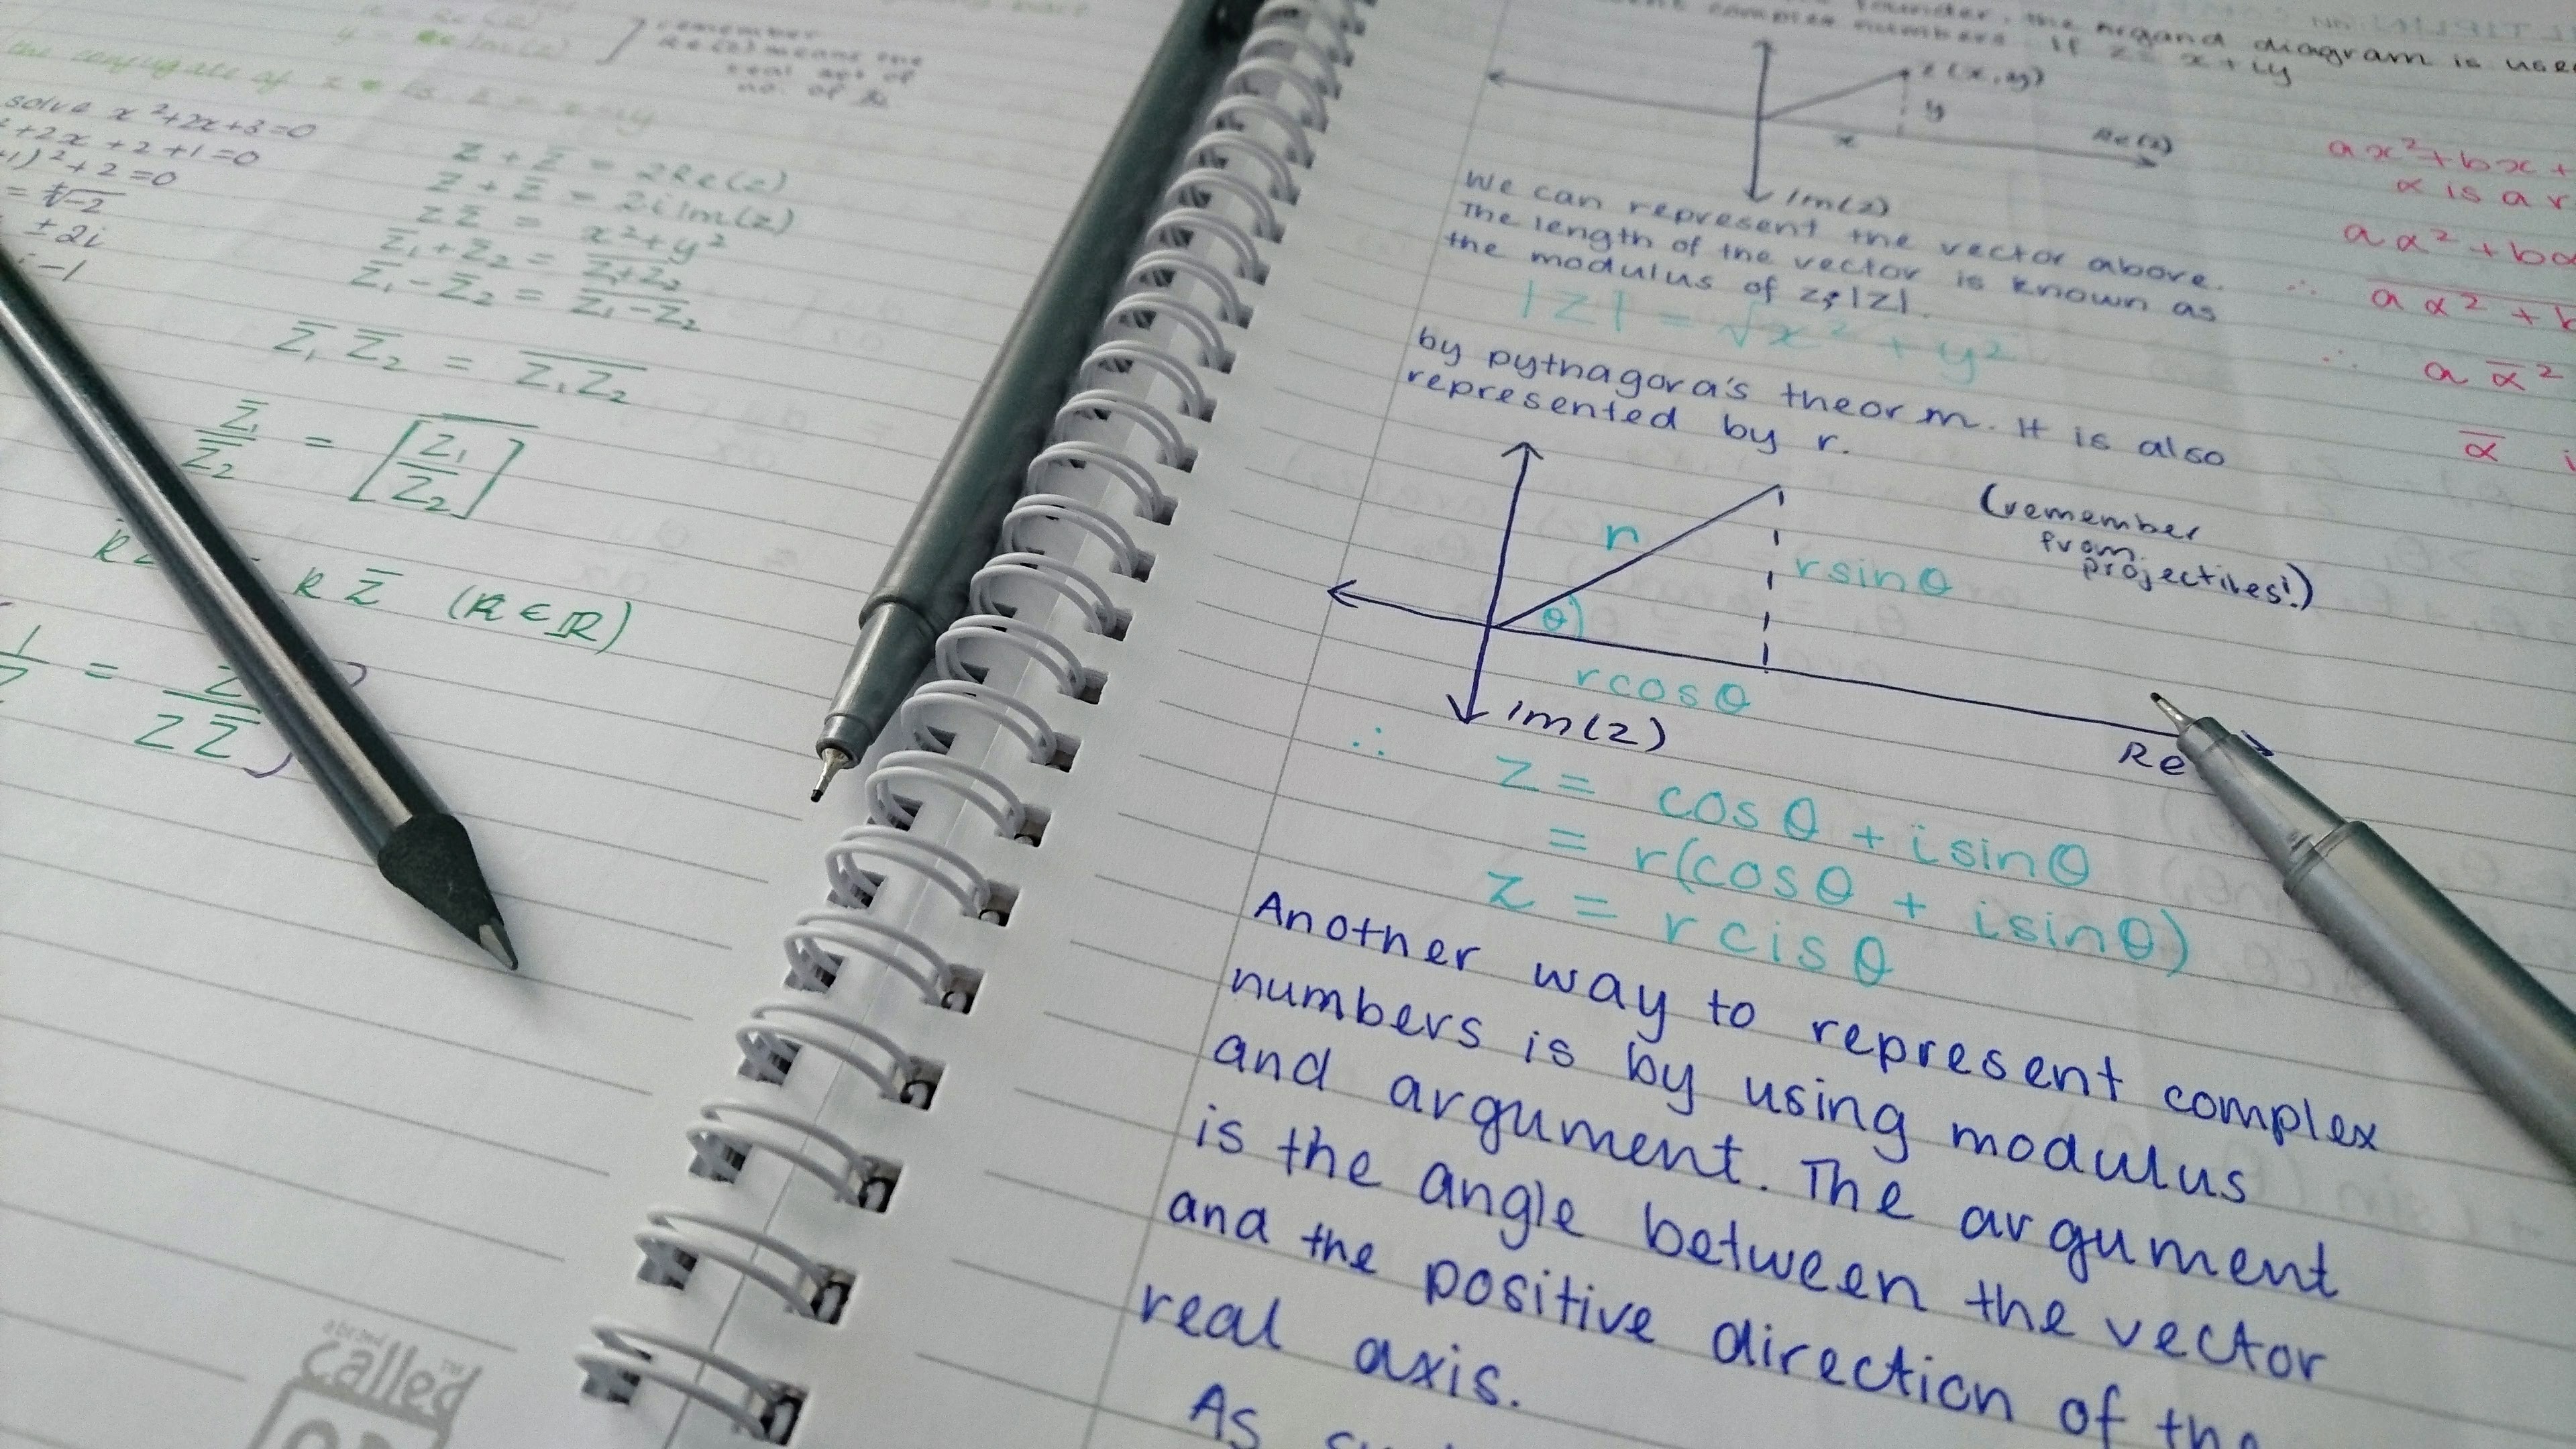 remember
Re(z) means the
real
no. of
the conjugate of z
solve x²+2x+3=0
+2x+2+1=0
+1)²+2=0
=±√-2
±2i
-1
z + z̅ = 2Re(z)
z + z̅ = 2i Im(z)
z z̅ = x²+y²
z̅₁+z̅₂ = \overline{z₁+z₂}
z̅₁-z̅₂ = \overline{z₁-z₂}
z̅₁ z̅₂ = \overline{z₁z₂}
z̅₁/z̅₂ = \overline{[z₁/z₂]}
k z̅ (k∈ℝ)
1/z = z̅/(z z̅)
called™
the argand diagram is use
complex numbers. If z = x+iy
z(x,y)
y
x
Re(z)
Im(z)
We can represent the vector above.
The length of the vector is known as
the modulus of z, |z|.
|z| = √x²+y²
by pythagora's theorm. It is also
represented by r.
(remember
from
projectiles!)
r
rsinθ
θ
rcosθ
Im(z)
Re
∴ z = cosθ + isinθ
= r(cosθ + isinθ)
z = rcisθ
Another way to represent complex
numbers is by using modulus
and argument. The argument
is the angle between the vector
and the positive direction of the
real axis.
As
ax²+bx+
α is a r
aα²+bα
∴ \overline{aα²+b
∴ a α̅²
α̅ i